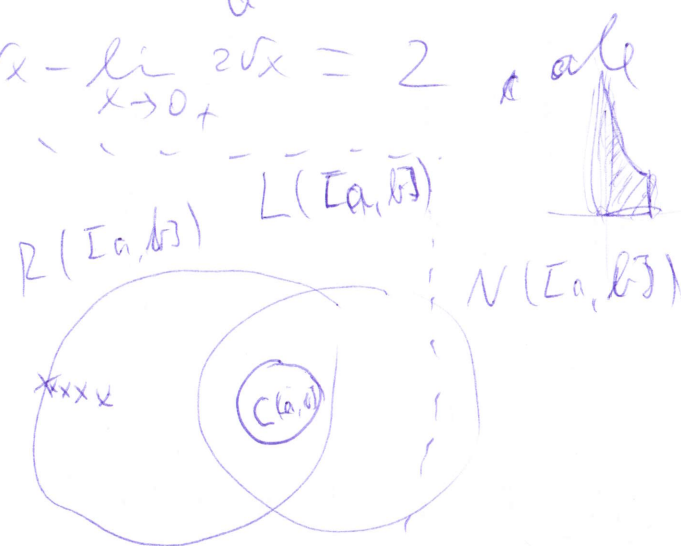 √x - lim 2√x = 2, ale
x→0+
L([a,b])
R([a,b])
N([a,b])
xxxx
C([a,b])